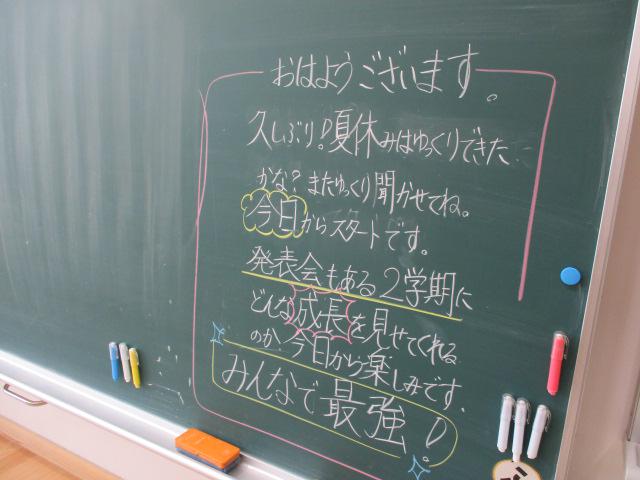 おはようございます。
久しぶり!夏休みはゆっくりできた
かな?またゆっくり聞かせてね。
今日からスタートです。
発表会もある2学期に
どんな成長を見せてくれる
のか、今日から楽しみです。
みんなで最強!